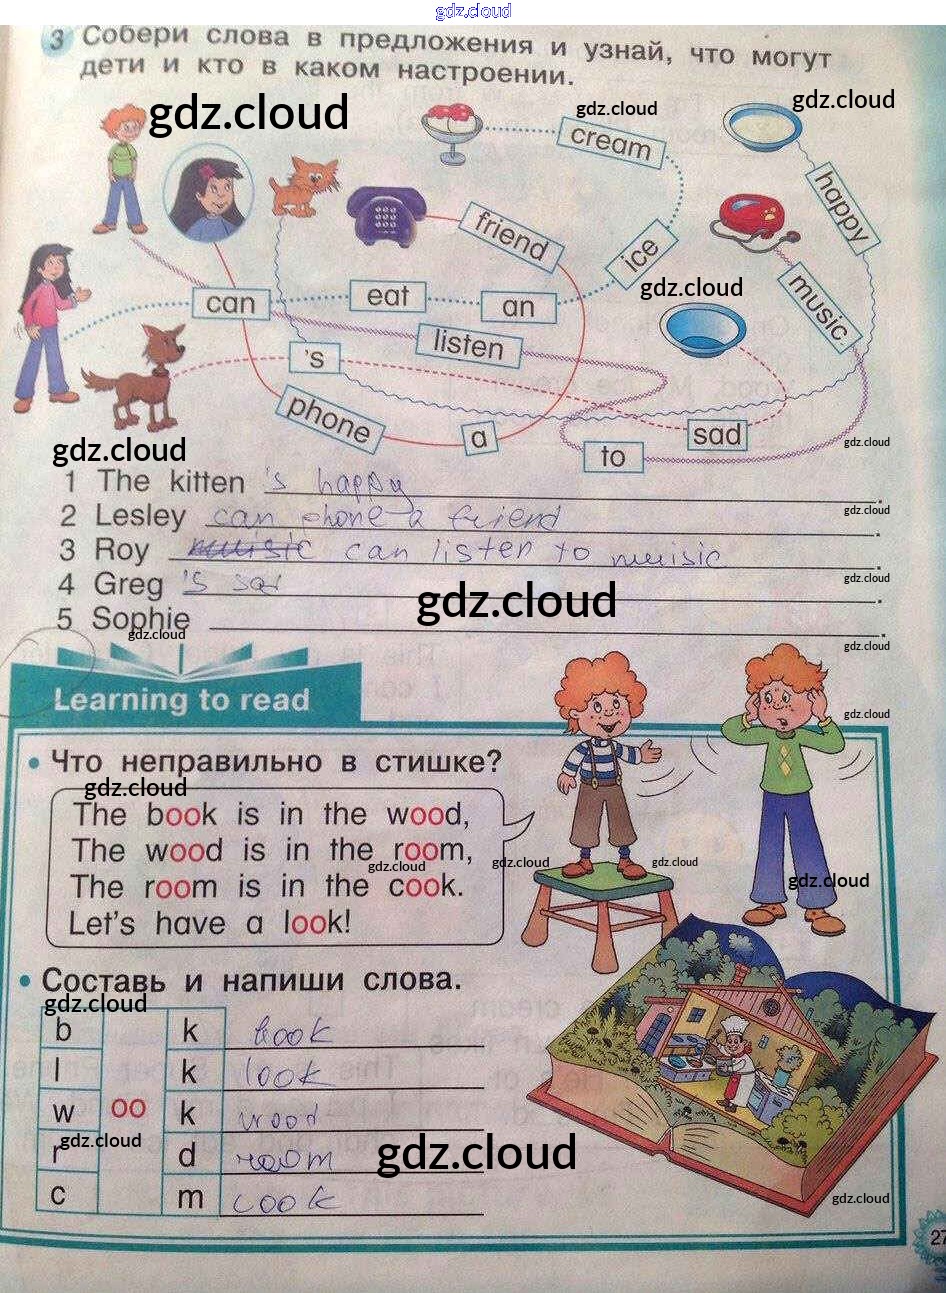 gdz.cloud
3 Собери слова в предложения и узнай, что могут
дети и кто в каком настроении.
gdz.cloud
gdz.cloud
gdz.cloud
cream
happy
friend
ice
gdz.cloud
music
can
eat
an
listen
's
phone
a
sad
to
gdz.cloud
gdz.cloud
1 The kitten 's happy.
gdz.cloud
2 Lesley can phone a friend.
3 Roy can listen to muisic.
gdz.cloud
4 Greg 's sad.
gdz.cloud
5 Sophie .
gdz.cloud
gdz.cloud
Learning to read
gdz.cloud
• Что неправильно в стишке?
gdz.cloud
The book is in the wood,
The wood is in the room,
gdz.cloud
gdz.cloud
gdz.cloud
The room is in the cook.
gdz.cloud
Let's have a look!
• Составь и напиши слова.
gdz.cloud
b k book
l k look
w oo k wood
gdz.cloud
r d room
gdz.cloud
c m cook
gdz.cloud
27